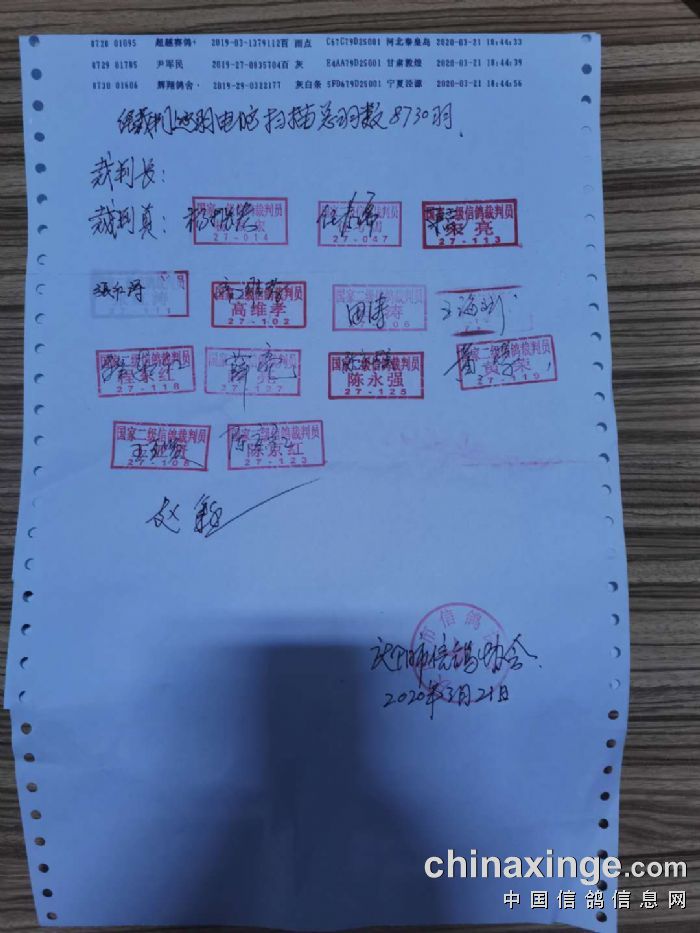 8728 01095 超越赛鸽+ 2019-03-1379112百 雨点 C67C79D25001 河北秦皇岛 2020-03-21 18:44:33
8729 01785 尹军民 2019-27-0835704百 灰 E4AA79D25001 甘肃敦煌 2020-03-21 18:44:39
8730 01606 辉翔鸽舍· 2019-29-0312177 灰白条 5FD679D25001 宁夏泾源 2020-03-21 18:44:56
经裁判 电脑扫描总羽数8730羽.
裁判长:
裁判员:
国家二级信鸽裁判员
27-014
国家二级信鸽裁判员
27-047
国家二级信鸽裁判员
亮
27-113
27-111
国家二级信鸽裁判员
高维孝
27-102
国家二级信鸽裁判员
田涛
王海
国家二级信鸽裁判员
程家红
27-118
国家二级信鸽裁判员
薛亮
27-127
国家二级信鸽裁判员
陈永强
27-125
国家二级信鸽裁判员
黄 荣
27-119
国家二级信鸽裁判员
27-108
国家二级信鸽裁判员
陈京红
27-123
赵
市信鸽
市信鸽协会.
2020年3月21日
chinaxinge.com
中国信鸽信息网